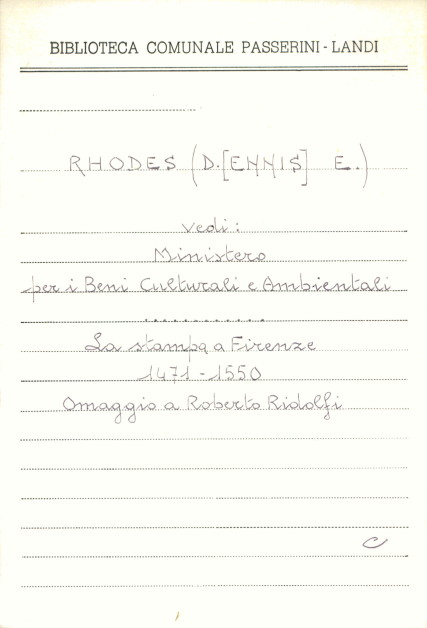 BIBLIOTECA COMUNALE PASSERINI - LANDI
RHODES (D.[ENNIS] E.)
vedi:
Ministero
per i Beni Culturali e Ambientali
...........
La stampa a Firenze
1471 - 1550
Omaggio a Roberto Ridolfi
C